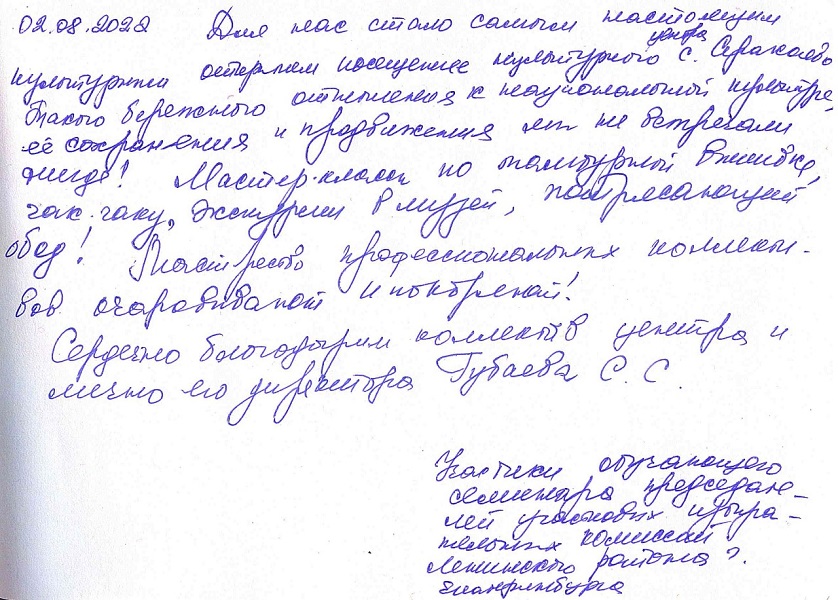 02.08.2022 Для нас стало самым настоящим
культурным остервнем посещение культурного центра с. Сарапово
Такого бережного отношения к национальной культуре,
её сохранения и продвижения мы не встречали
нигде! Мастер-классы по тамбурной вышивке,
чак-чаку, экскурсии в музей, потрясающий
обед! Мастерство профессиональных коллекти-
вов очаровывает и покоряет!
Сердечно благодарим коллектив центра и
лично его директора Губаева С. С.
Участники обучающего
семинара председате-
лей участковых избира-
тельных комиссий
Ленинского района г.
Екатеринбурга